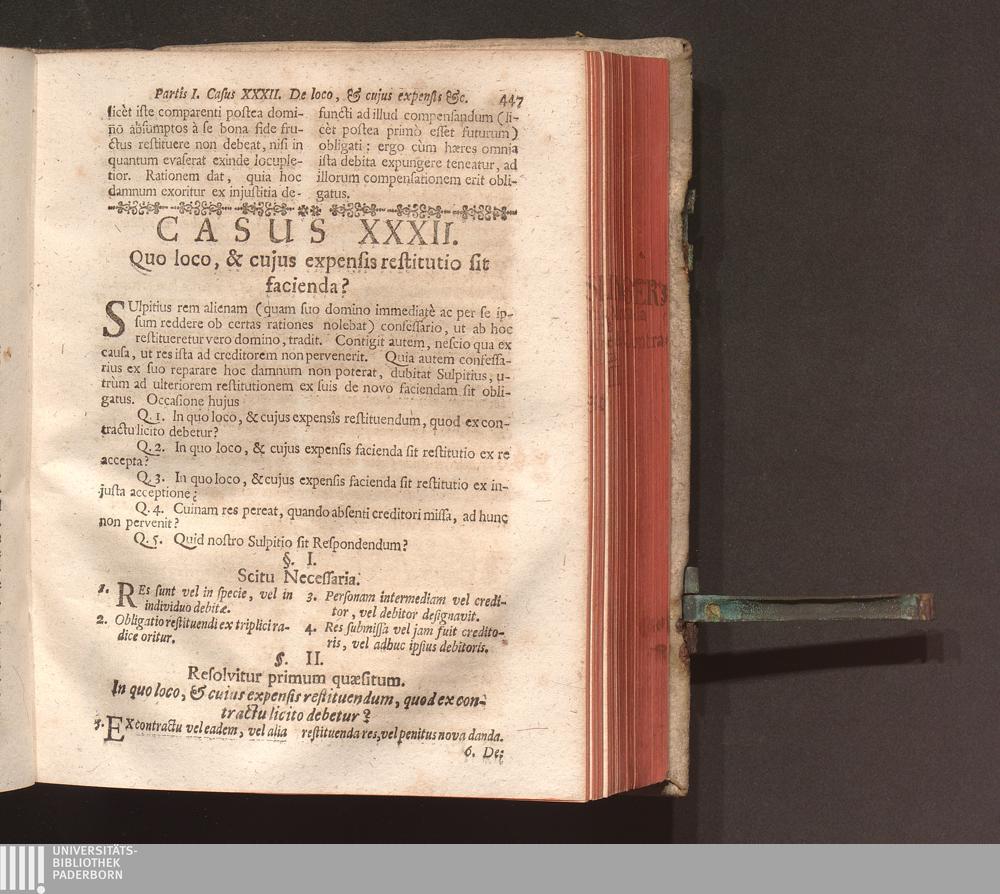 Partis I. Casus XXXII. De loco, & cujus expensis &c. 447
licèt iste comparenti postea domi-
nō absumptos à se bona fide fru-
ctus restituere non debeat, nisi in
quantum evaserat exinde locuple-
tior. Rationem dat, quia hoc
damnum exoritur ex injustitia de-
functi ad illud compensandum (li-
cèt postea primò esset futurum)
obligati: ergo cùm hæres omnia
ista debita expungere teneatur, ad
illorum compensationem erit obli-
gatus.
CASUS XXXII.
Quo loco, & cujus expensis restitutio sit
facienda?
SUlpitius rem alienam (quam suo domino immediatè ac per se ip-
sum reddere ob certas rationes nolebat) confessario, ut ab hoc
restitueretur vero domino, tradit. Contigit autem, nescio qua ex
causa, ut res ista ad creditorem non pervenerit. Quia autem confessa-
rius ex suo reparare hoc damnum non poterat, dubitat Sulpitius, u-
trùm ad ulteriorem restitutionem ex suis de novo faciendam sit obli-
gatus. Occasione hujus
Q. 1. In quo loco, & cujus expensis restituendum, quod ex con-
tractu licito debetur?
Q. 2. In quo loco, & cujus expensis facienda sit restitutio ex re
accepta?
Q. 3. In quo loco, & cujus expensis facienda sit restitutio ex in-
justa acceptione?
Q. 4. Cuinam res pereat, quando absenti creditori missa, ad hunc
non pervenit?
Q. 5. Quid nostro Sulpitio sit Respondendum?
§. I.
Scitu Necessaria.
1. REs sunt vel in specie, vel in
individuo debitæ.
2. Obligatio restituendi ex triplici ra-
dice oritur.
3. Personam intermediam vel credi-
tor, vel debitor designavit.
4. Res submissa vel jam fuit credito-
ris, vel adhuc ipsius debitoris.
§. II.
Resolvitur primum quæsitum.
In quo loco, & cuius expensis restituendum, quod ex con-
tractu licito debetur?
5. EX contractu vel eadem, vel alia restituenda res, vel penitus nova danda.
6. De:
UNIVERSITÄTS-
BIBLIOTHEK
PADERBORN